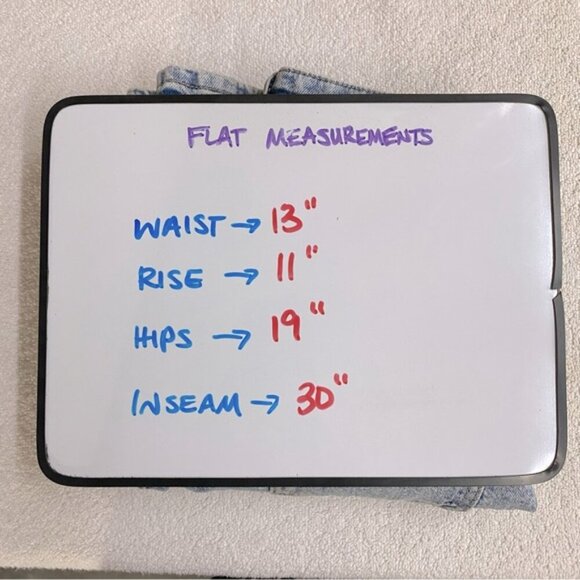 FLAT MEASUREMENTS
WAIST → 13"
RISE → 11"
HIPS → 19"
INSEAM → 30"